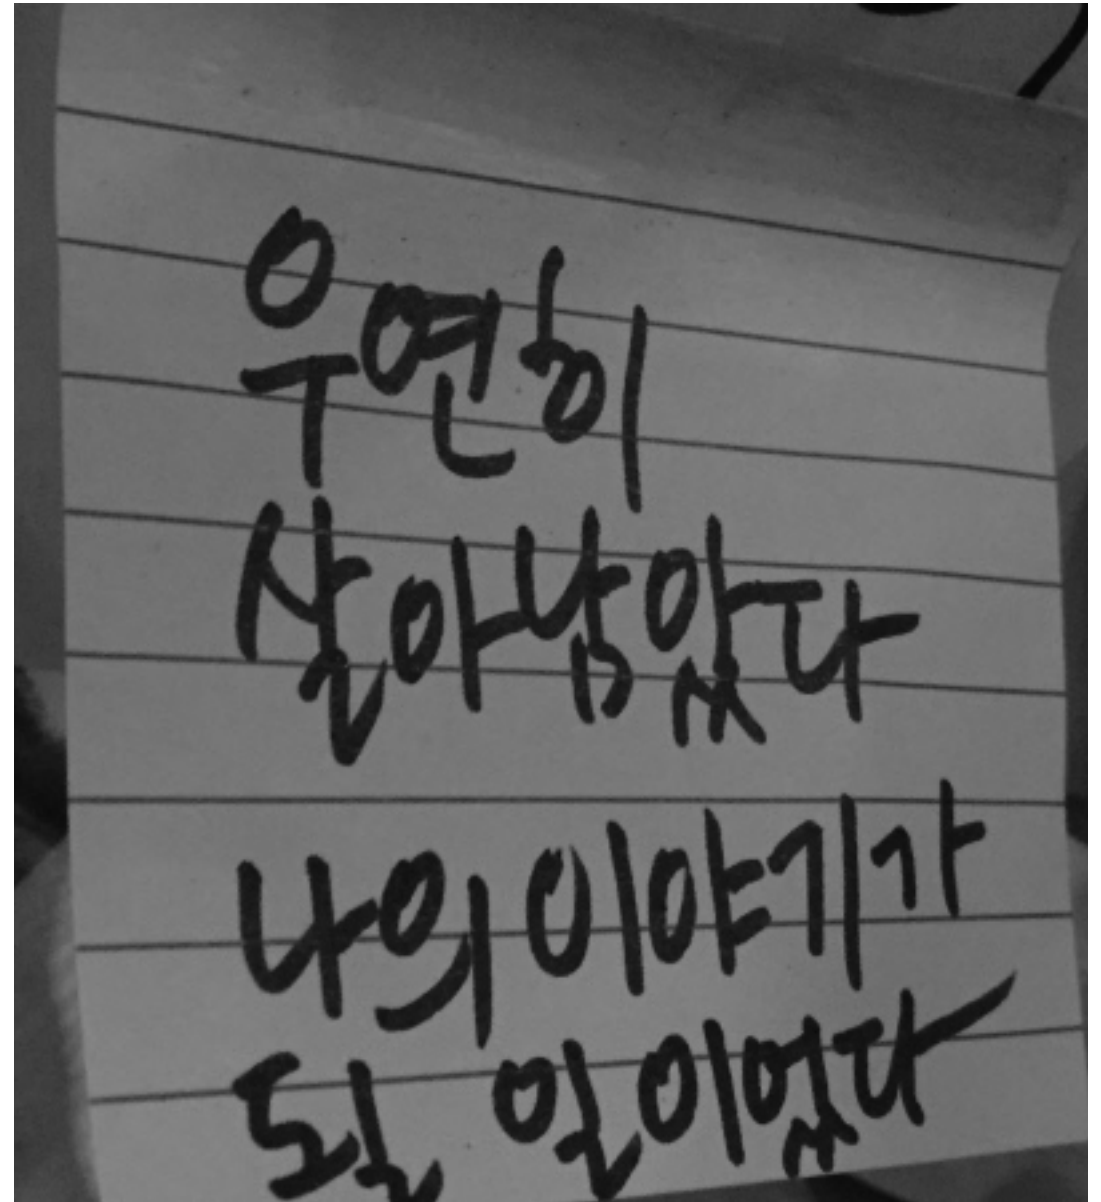 우연히
살아남았다
나의 이야기가
될 일이었다